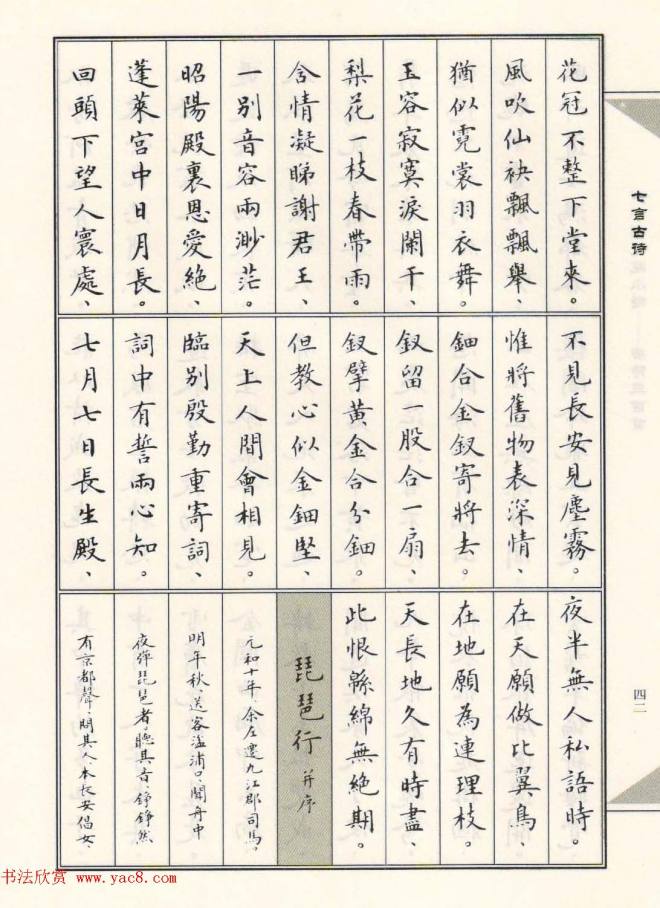 七言古詩
花冠不整下堂來。
風吹仙袂飄飄舉、
猶似霓裳羽衣舞。
玉容寂寞淚闌干、
梨花一枝春帶雨。
含情凝睇謝君王、
一別音容兩渺茫。
昭陽殿裏恩愛絶、
蓬萊宮中日月長。
回頭下望人寰處、
不見長安見塵霧。
惟將舊物表深情、
鈿合金釵寄將去。
釵留一股合一扇、
釵擘黃金合分鈿。
但教心似金鈿堅、
天上人間會相見。
臨別殷勤重寄詞、
詞中有誓兩心知。
七月七日長生殿、
夜半無人私語時。
在天願做比翼鳥、
在地願為連理枝。
天長地久有時盡、
此恨緜綿無絕期。
琵琶行 并序
元和十年、余左遷九江郡司馬。
明年秋、送客湓浦口、聞舟中
夜彈琵琶者。聽其音、錚錚然
有京都聲、問其人、本長安倡女、
四二
书法欣赏 www.yac8.com